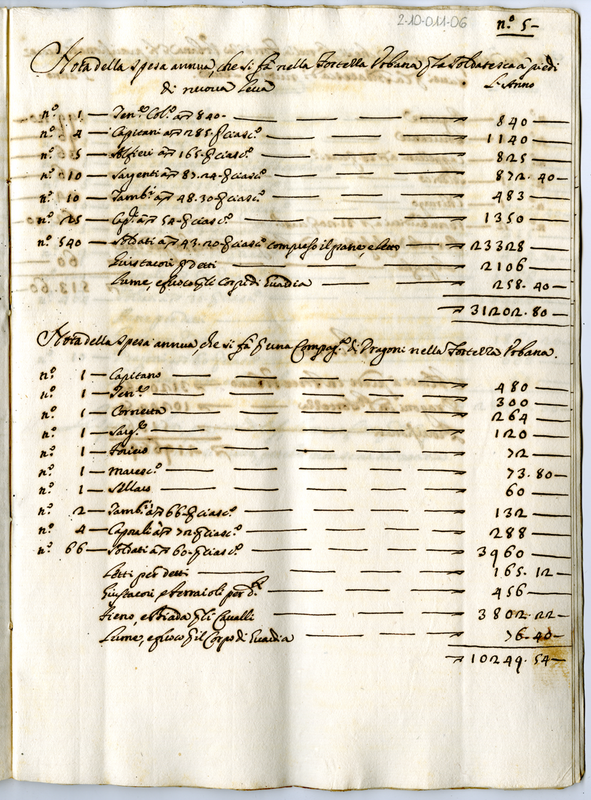 2-10-011-06
n.º 5-
Nota della spesa annua, che si fà nella Fortezza Urbana p la Soldatesca à piedi
di nuova Leva
L'Anno
n.º 1 — Ten.e Col.o à 840- — 840 —
n.º 4 — Capitani à 285- p ciasc.o — 1140 —
n.º 5 — Alfieri à 165- p ciasc.o — 825 —
n.º 10 — Sargenti à 87.24- p ciasc.o — 872.40-
n.º 10 — Tamb.i à 48.30- p ciasc.o — 483 —
n.º 25 — Cap.li à 54- p ciasc.o — 1350 —
n.º 540 — Soldati à 43.20- p ciasc.o compreso il pane, e letto — 23328 —
Giustacori p detti — 2106 —
Lume, e fuoco p gli Corpi di Guardia — 258.40-
31202.80-
Nota della spesa annua, che si fà p una Compag.a di Dragoni nella Fortezza Urbana.
n.º 1 — Capitano — 480 —
n.º 1 — Ten.e — 300 —
n.º 1 — Cornetta — 264 —
n.º 1 — Sarg.e — 120 —
n.º 1 — Foriero — 72 —
n.º 1 — Maresc.o — 73.80-
n.º 1 — Sellaro — 60 —
n.º 2 — Tamb.i à 66- p ciasc.o — 132 —
n.º 4 — Caporali à 72- p ciasc.o — 288 —
n.º 66 — Soldati à 60- p ciasc.o — 3960 —
Letti per detti — 165.12-
Giustacori, e Ferraioli per d.i — 456 —
Fieno, e Biada p gli Cavalli — 3802.22-
Lume, e fuoco p il Corpo di Guardia — 76.40-
10249.54-